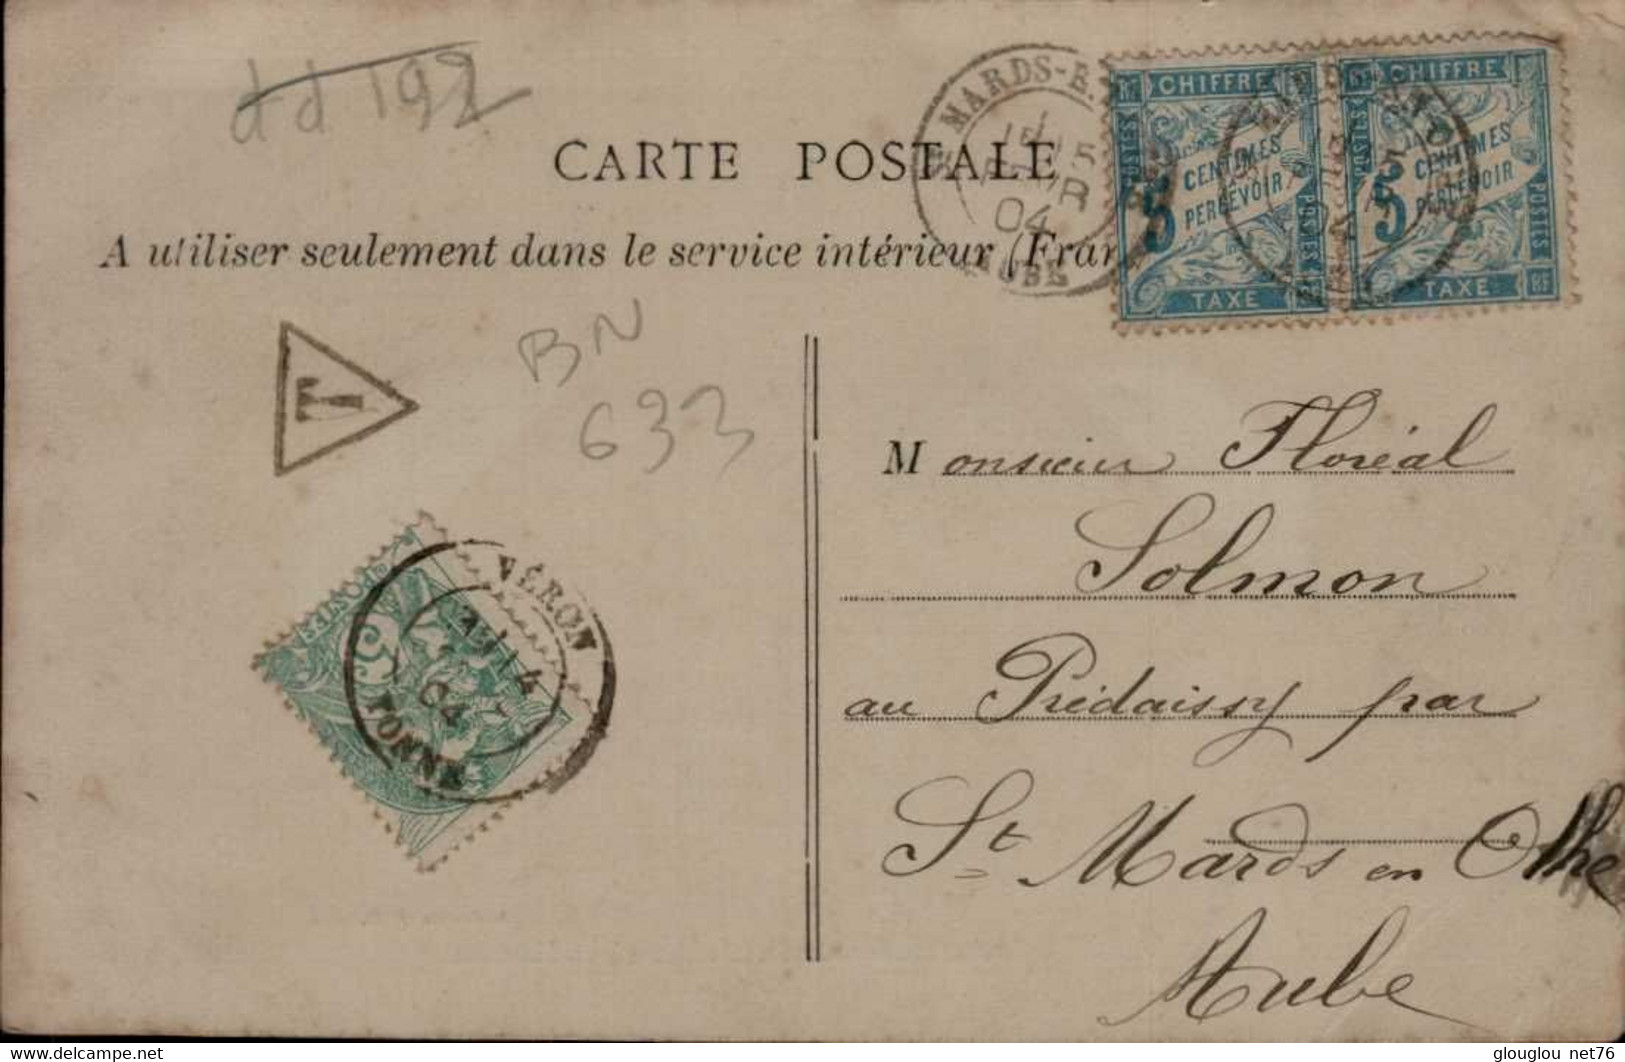 dd 192
CARTE POSTALE
A utiliser seulement dans le service intérieur (Fran
MARDS-E
15
04
AUBE
CHIFFRE
POSTES
5 CENTIMES
PERCEVOIR
TAXE
RF
CHIFFRE
POSTES
5 CENTIMES
PERCEVOIR
POSTES
TAXE
RF
T
BN
633
Monsieur Floréal
Solmon
au Prédaissy par
St Mards en Othe
Aube
POSTES
5
VÉRON
4
04
YONNE
glouglou_net76
www.delcampe.net